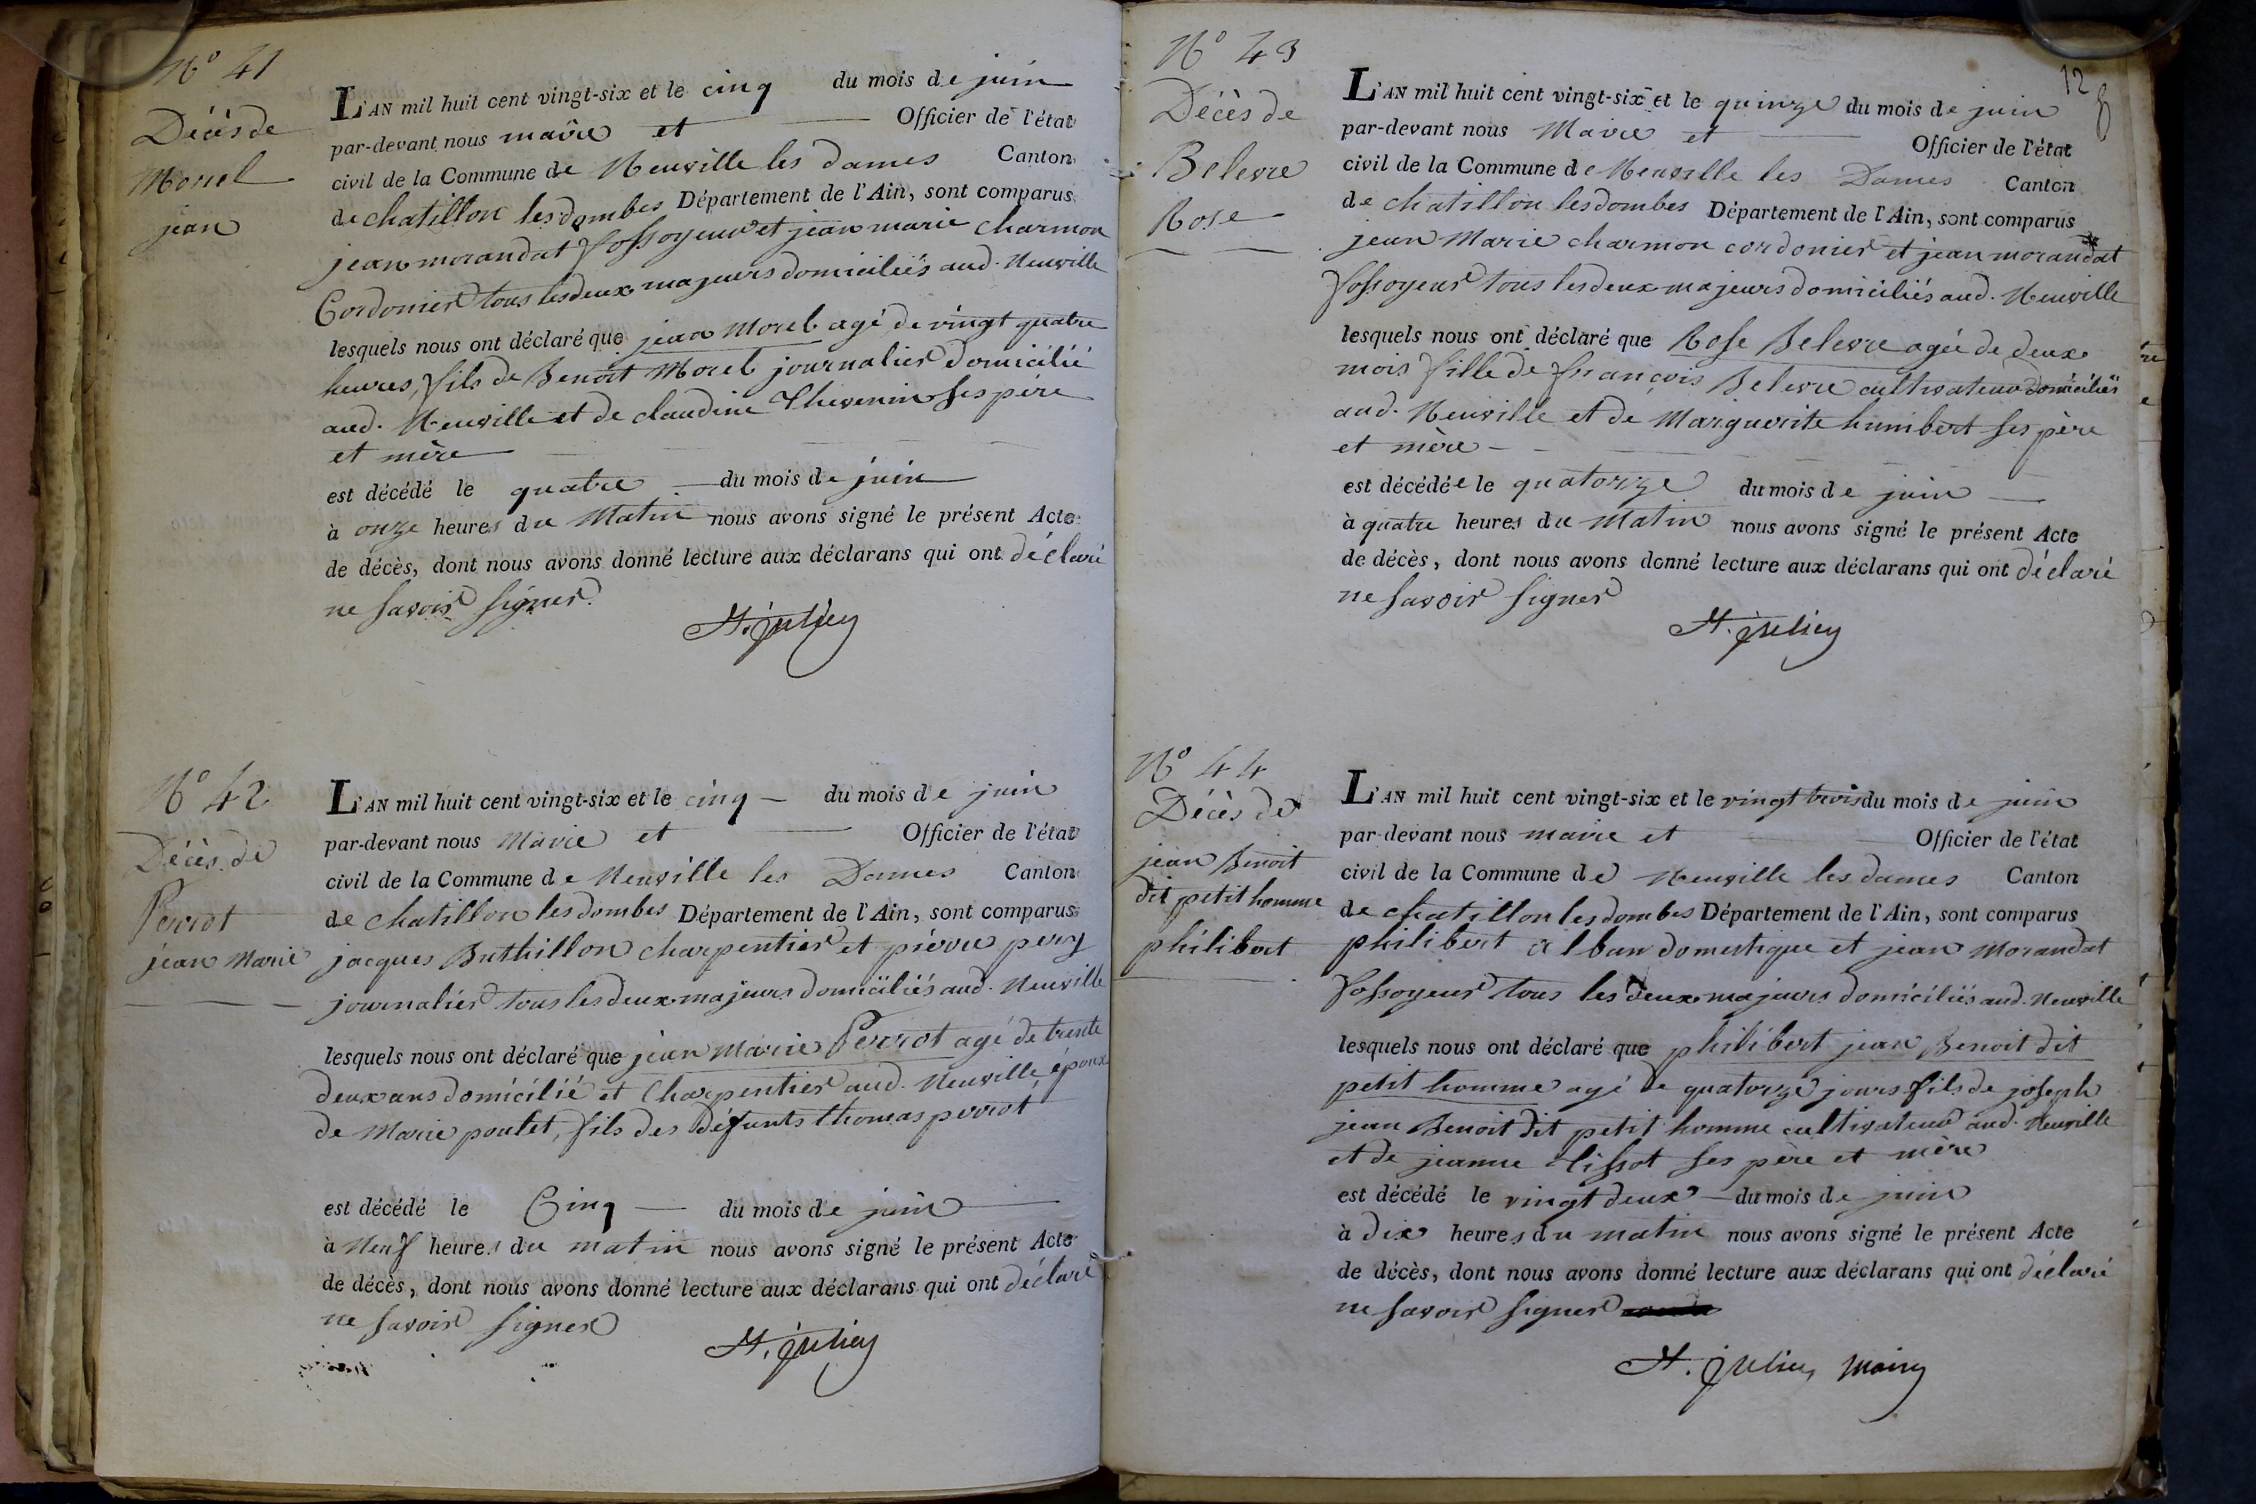 N° 41
Décès de
Morel
jean
L'AN mil huit cent vingt-six et le cinq du mois de juin
par-devant nous maire et Officier de l'état
civil de la Commune de Neuville les dames Canton
de chatillon lesdombes Département de l'Ain, sont comparus
jean morandat fossoyeur et jean marie charmon
Cordonier tous lesdeux majeurs domiciliés aud. Neuville
lesquels nous ont déclaré que jean Morel agé de vingt quatre
heures, fils de Benoit Morel journalier domicilié
aud. Neuville et de claudine Thevenin ses père
et mère
est décédé le quatre du mois de juin
à onze heures du Matin nous avons signé le présent Acte
de décès, dont nous avons donné lecture aux déclarans qui ont déclaré
ne savoir signer.
H. julien
N° 42
Décès de
Perrot
jean Marie
L'AN mil huit cent vingt-six et le cinq du mois de juin
par-devant nous Maire et Officier de l'état
civil de la Commune de Neuville les Dames Canton
de chatillon les dombes Département de l'Ain, sont comparus
jacques Buthillon charpentier et pierre pery
journalier tous les deux majeurs domiciliés aud. Neuville
lesquels nous ont déclaré que jean Marie Perrot agé de trente
deux ans domicilié et Charpentier aud. Neuville, époux
de Marie poulet, fils des défunts thomas perrot
est décédé le Cinq du mois de juin
à Neuf heures du matin nous avons signé le présent Acte
de décès, dont nous avons donné lecture aux déclarans qui ont déclaré
ne savoir signer
H. julien
12
N° 43
Décès de
Belevre
Rose
L'AN mil huit cent vingt-six et le quinze du mois de juin
par-devant nous Maire et Officier de l'état
civil de la Commune de Neuville les Dames Canton
de chatillon lesdombes Département de l'Ain, sont comparus
jean Marie charmon cordonier et jean morandat
fossoyeur tous lesdeux majeurs domiciliés aud. Neuville
lesquels nous ont déclaré que Rose Belevre agée de deux
mois fille de françois Belevre cultivateur domiciliés
aud. Neuville et de Marguerite humbert ses père
et mère
est décédée le quatorze du mois de juin
à quatre heures du Matin nous avons signé le présent Acte
de décès, dont nous avons donné lecture aux déclarans qui ont déclaré
ne savoir signer
H. julien
N° 44
Décès de
jean Benoit
dit petit homme
philibert
L'AN mil huit cent vingt-six et le vingt trois du mois de juin
par-devant nous maire et Officier de l'état
civil de la Commune de Neuville les dames Canton
de chatillon les dombes Département de l'Ain, sont comparus
philibert alban domestique et jean Morandat
fossoyeur tous les deux majeurs domiciliés aud. Neuville
lesquels nous ont déclaré que philibert jean Benoit dit
petit homme agé de quatorze jours fils de joseph
jean Benoit dit petit homme cultivateur aud. Neuville
et de jeanne tissot ses père et mère
est décédé le vingt deux du mois de juin
à dix heures du matin nous avons signé le présent Acte
de décès, dont nous avons donné lecture aux déclarans qui ont déclaré
ne savoir signer
H. julien maire